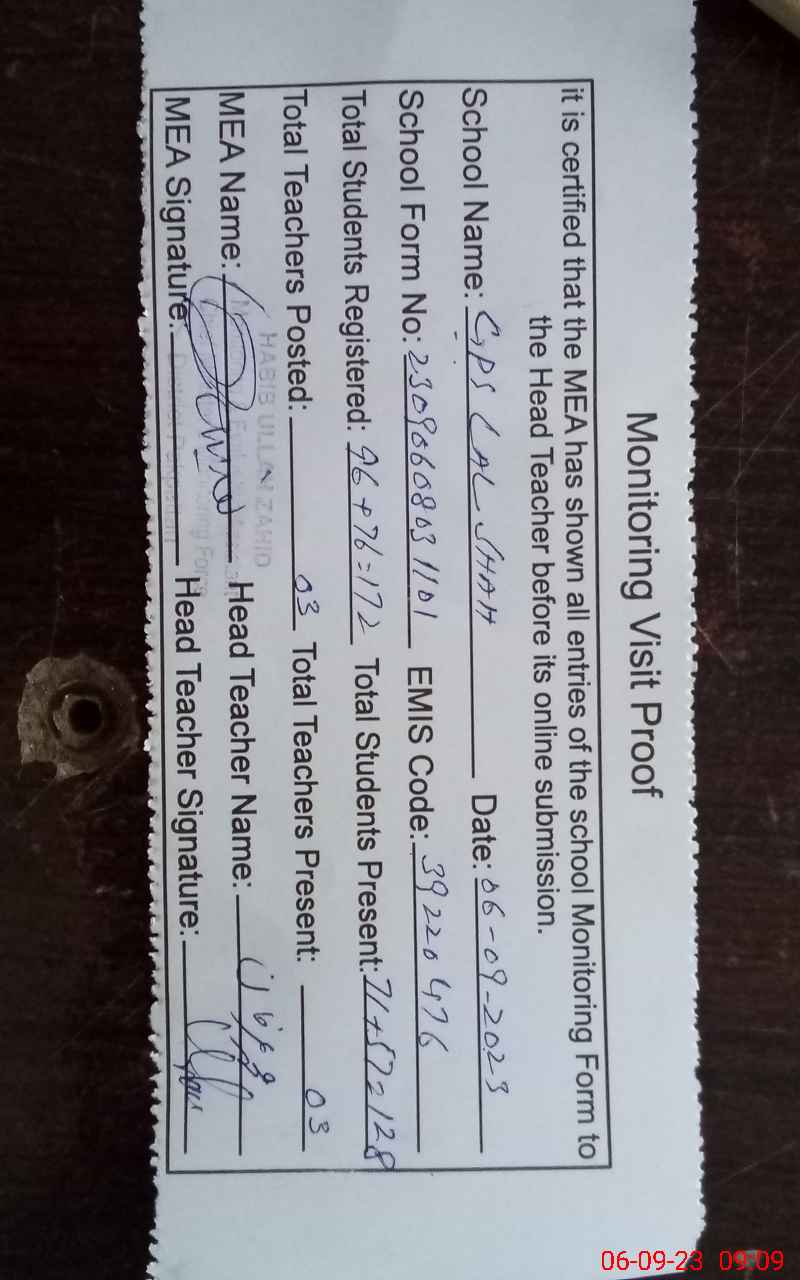 Monitoring Visit Proof
it is certified that the MEA has shown all entries of the school Monitoring Form to
the Head Teacher before its online submission.
School Name: GPS LAL SHAH Date: 06-09-2023
School Form No: 23090608031101 EMIS Code: 39220476
Total Students Registered: 96+76=172 Total Students Present: 71+57=128
Total Teachers Posted: 03 Total Teachers Present: 03
HABIB ULLAH ZAHID
MEA Name: Head Teacher Name:
MEA Signature: Head Teacher Signature:
06-09-23 09:09